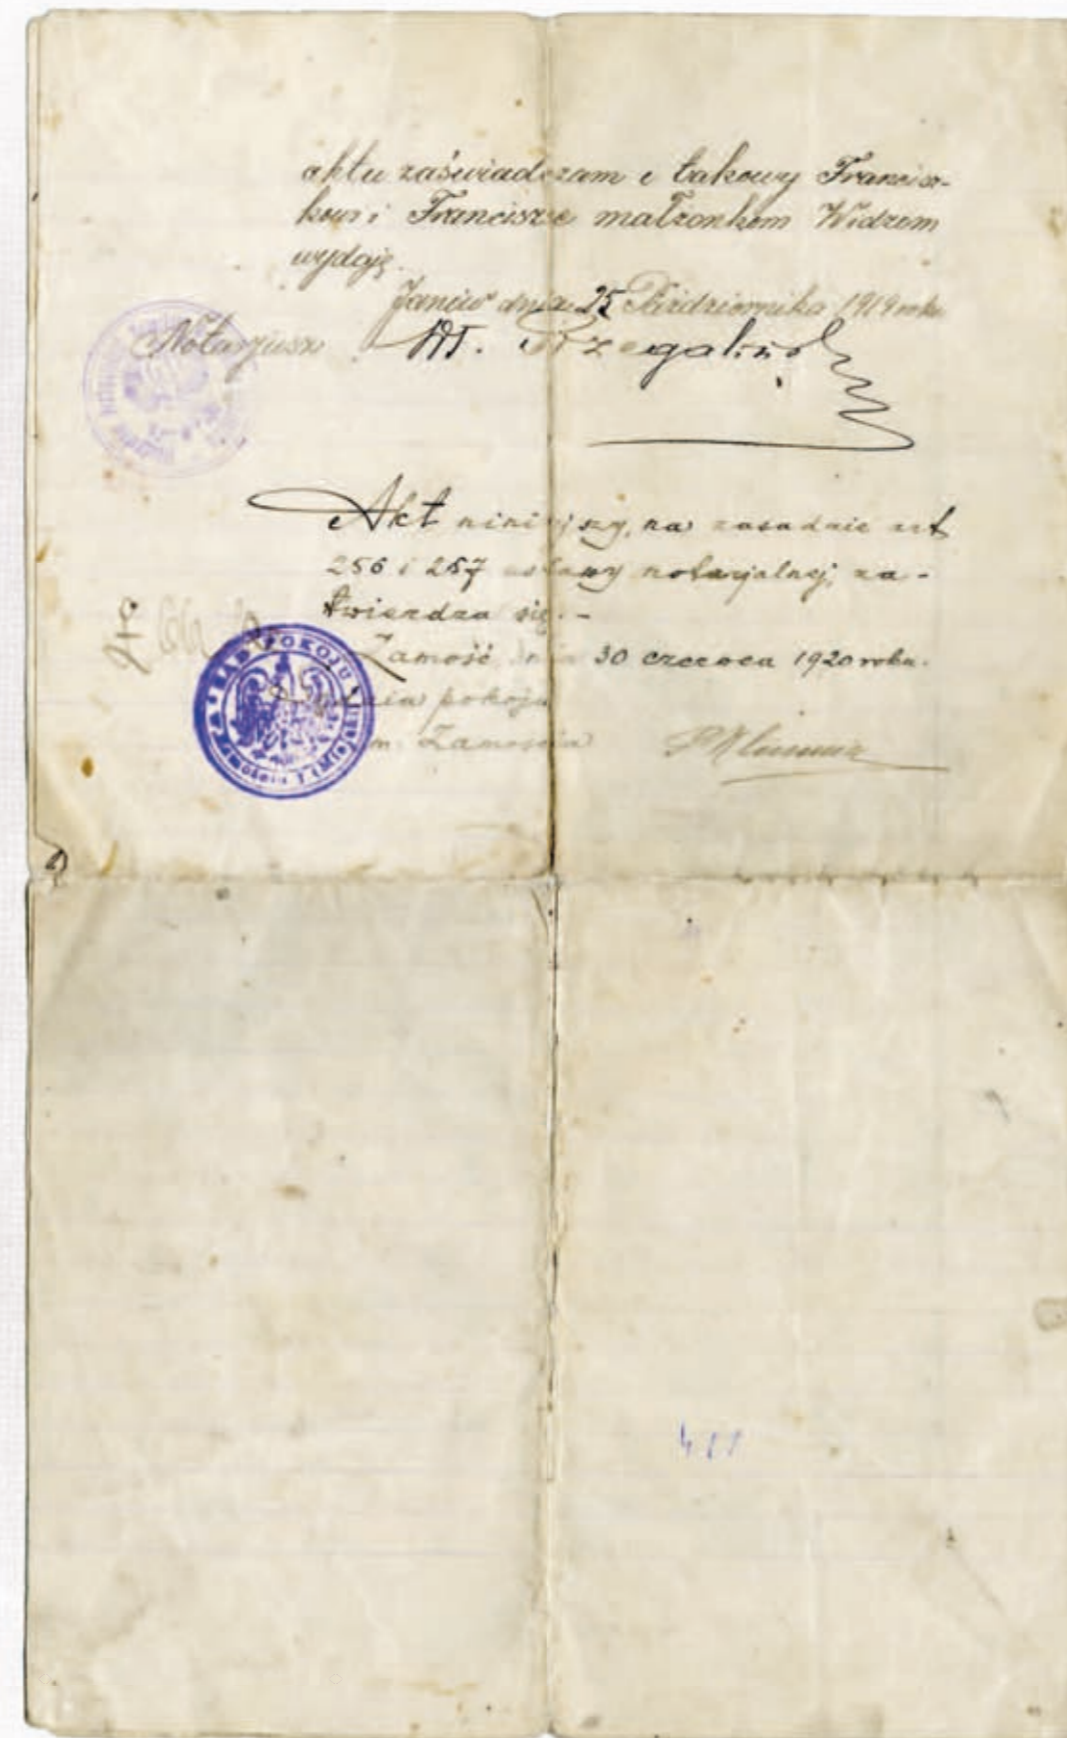 aktu zaświadczam i takowy Francisz-
kowi i Franciszce małżonkom Widzom
wydaję.
Janów dnia 25 Października 1919 roku
Notarjusz
Akt niniejszy, na zasadzie art
256 i 257 ustawy notarjalnej, za-
twierdza się. -
Zamość dnia 30 czerwca 1920 roku.
Sędzia pokoju
m. Zamościa
SĄD POKOJU